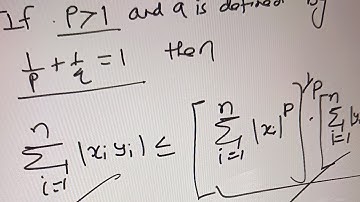 If P>1 and q is defined by
1/p + 1/q = 1 then
n∑i=1 |xi yi| ≤ [n∑i=1 |xi|^p]^1/p · [n∑i=1 |y